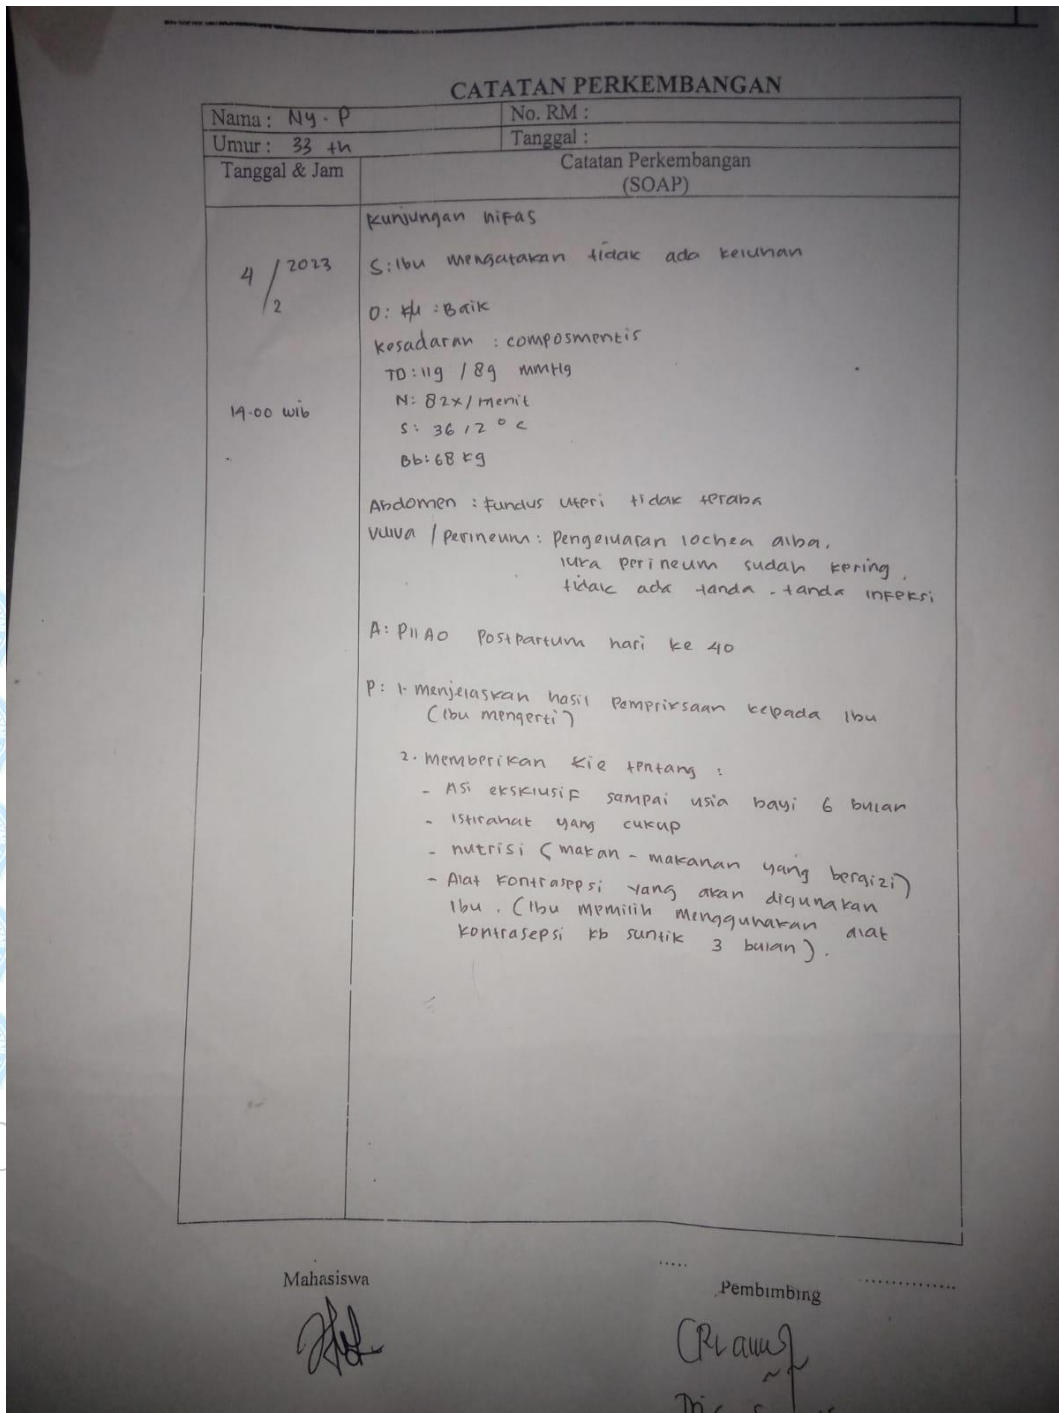 CATATAN PERKEMBANGAN
Nama : Ny. P
No. RM :
Umur : 33 th
Tanggal :
Tanggal & Jam
Catatan Perkembangan
(SOAP)
Kunjungan nifas
4/2 2023
S: Ibu mengatakan tidak ada keluhan
O: KU : Baik
Kesadaran : composmentis
TD: 119 / 89 mmHg
14.00 wib
N: 82x/menit
S: 36,2 °c
Bb: 68 kg
Abdomen : fundus uteri tidak teraba
Vulva / perineum : pengeluaran lochea alba,
luka perineum sudah kering,
tidak ada tanda-tanda infeksi
A: PIIA0 Postpartum hari ke 40
P: 1. menjelaskan hasil pempriksaan kepada Ibu
(Ibu mengerti)
2. memberikan kie tentang :
- Asi eksklusif sampai usia bayi 6 bulan
- istirahat yang cukup
- nutrisi (makan-makanan yang bergizi)
- Alat kontrasepsi yang akan digunakan
Ibu. (Ibu memilih menggunakan alat
kontrasepsi kb suntik 3 bulan).
Mahasiswa
Pembimbing